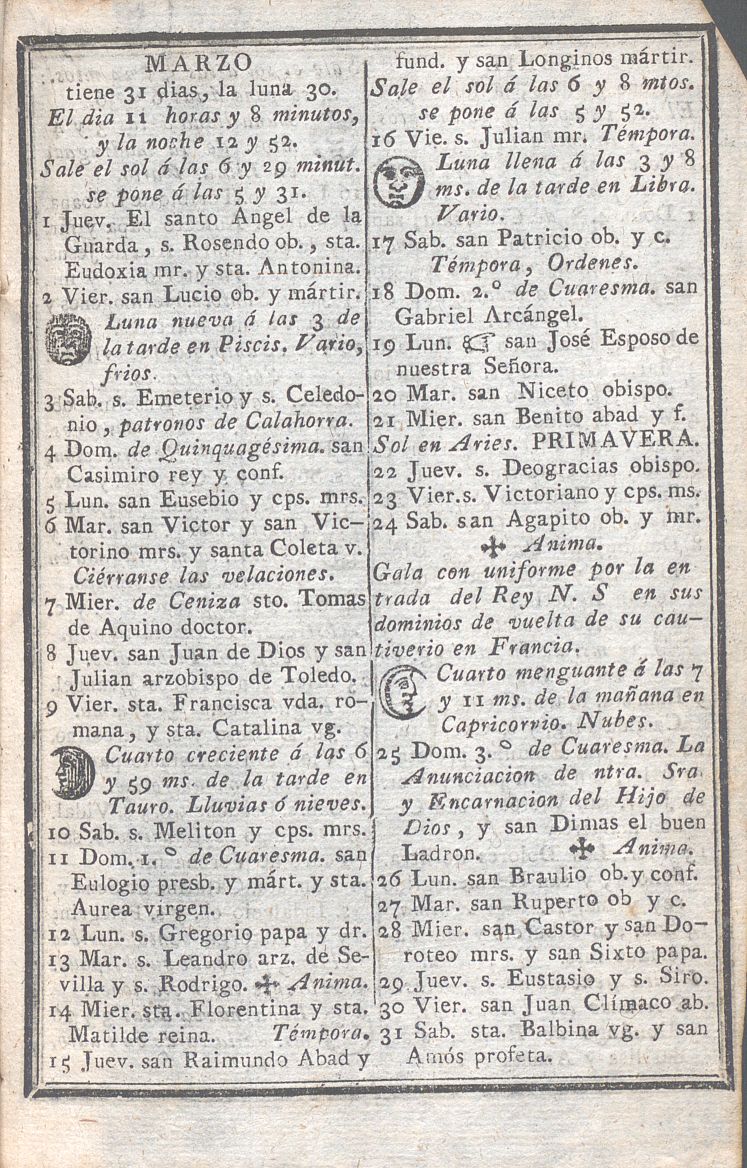 MARZO
tiene 31 dias, la luna 30.
El dia 11 horas y 8 minutos,
y la noche 12 y 52.
Sale el sol á las 6 y 29 minut.
se pone á las 5 y 31.
1 Juev. El santo Angel de la
Guarda, s. Rosendo ob., sta.
Eudoxia mr. y sta. Antonina.
2 Vier. san Lucio ob. y mártir.
Luna nueva á las 3 de
la tarde en Piscis. Vario,
frios.
3 Sab. s. Emeterio y s. Celedo-
nio, patronos de Calahorra.
4 Dom. de Quinquagésima. san
Casimiro rey y conf.
5 Lun. san Eusebio y cps. mrs.
6 Mar. san Victor y san Vic-
torino mrs. y santa Coleta v.
Ciérranse las velaciones.
7 Mier. de Ceniza sto. Tomas
de Aquino doctor.
8 Juev. san Juan de Dios y san
Julian arzobispo de Toledo.
9 Vier. sta. Francisca vda. ro-
mana, y sta. Catalina vg.
Cuarto creciente á las 6
y 59 ms. de la tarde en
Tauro. Lluvias ó nieves.
10 Sab. s. Meliton y cps. mrs.
11 Dom. 1.º de Cuaresma. san
Eulogio presb. y márt. y sta.
Aurea virgen.
12 Lun. s. Gregorio papa y dr.
13 Mar. s. Leandro arz. de Se-
villa y s. Rodrigo. ✠ Anima.
14 Mier. sta. Florentina y sta.
Matilde reina. Témpora.
15 Juev. san Raimundo Abad y
fund. y san Longinos mártir.
Sale el sol á las 6 y 8 mtos.
se pone á las 5 y 52.
16 Vie. s. Julian mr. Témpora.
Luna llena á las 3 y 8
ms. de la tarde en Libra.
Vario.
17 Sab. san Patricio ob. y c.
Témpora, Ordenes.
18 Dom. 2.º de Cuaresma. san
Gabriel Arcángel.
19 Lun. ☞ san José Esposo de
nuestra Señora.
20 Mar. san Niceto obispo.
21 Mier. san Benito abad y f.
Sol en Aries. PRIMAVERA.
22 Juev. s. Deogracias obispo.
23 Vier. s. Victoriano y cps. ms.
24 Sab. san Agapito ob. y mr.
✠ Anima.
Gala con uniforme por la en
trada del Rey N. S en sus
dominios de vuelta de su cau-
tiverio en Francia.
Cuarto menguante á las 7
y 11 ms. de la mañana en
Capricornio. Nubes.
25 Dom. 3.º de Cuaresma. La
Anunciacion de ntra. Sra
y Encarnacion del Hijo de
Dios, y san Dimas el buen
Ladron. ✠ Anima.
26 Lun. san Braulio ob. y conf.
27 Mar. san Ruperto ob y c.
28 Mier. san Castor y san Do-
roteo mrs. y san Sixto papa.
29 Juev. s. Eustasio y s. Siro.
30 Vier. san Juan Clímaco ab.
31 Sab. sta. Balbina vg. y san
Amós profeta.